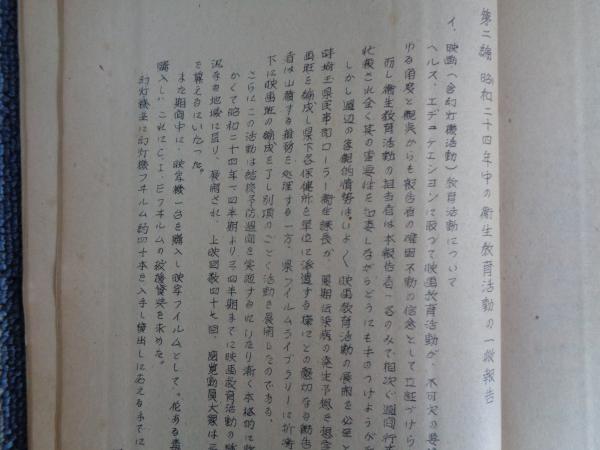 第二編 昭和二十四年中の衛生教育活動の一般報告
イ、映画(含幻灯機活動)教育活動について
ヘルス、エデュケエションに殴つて映画教育活動が、不可欠の要
ゆる角度と観点からも報告者の確固不動の信念として立証づけら
而し衛生教育活動の担当者は本報告者一名のみで相次ぐ週間行
忙殺され全く其の重要性を知悉しながらどうにも手のつけようが
しかし週辺の客観的情勢はいよ〱映画教育活動の展開を必至と
時埼玉県民事部ローラー衛生課長が、夏期伝染病の発生予想を
画班を編成し県下各保健所を単位に派遣する様にとの懇切なる勧告
者は山積する雑務を処理する一方、県フイルムライブラリーに折衝
下に映画班の編成を了し別項のごとく活動を展開したのである。
さらにこの活動は結核予防週間を実施するにいたり漸く本格的に
かくて昭和二十四年一四半期より三四半期までに映画教育活動の
汎な地域に亘り、展開され、上映回数四十七回、観覧動員大衆は
を算えるにいたつた。
また期間中に、映写機一台を購入し映写フイルムとして。花ある毒
購入し、これにC.I.Eフイルムの救援貸与を求めた。
幻灯機並に幻灯機フイルム約四十本を入手し貸出しに応えるまでに